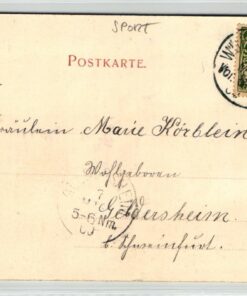 SPORT
POSTKARTE.
räulein Marie Körblein
Wohlgeboren
Geldersheim
b. Schweinfurt.
7
5-6 Nm.